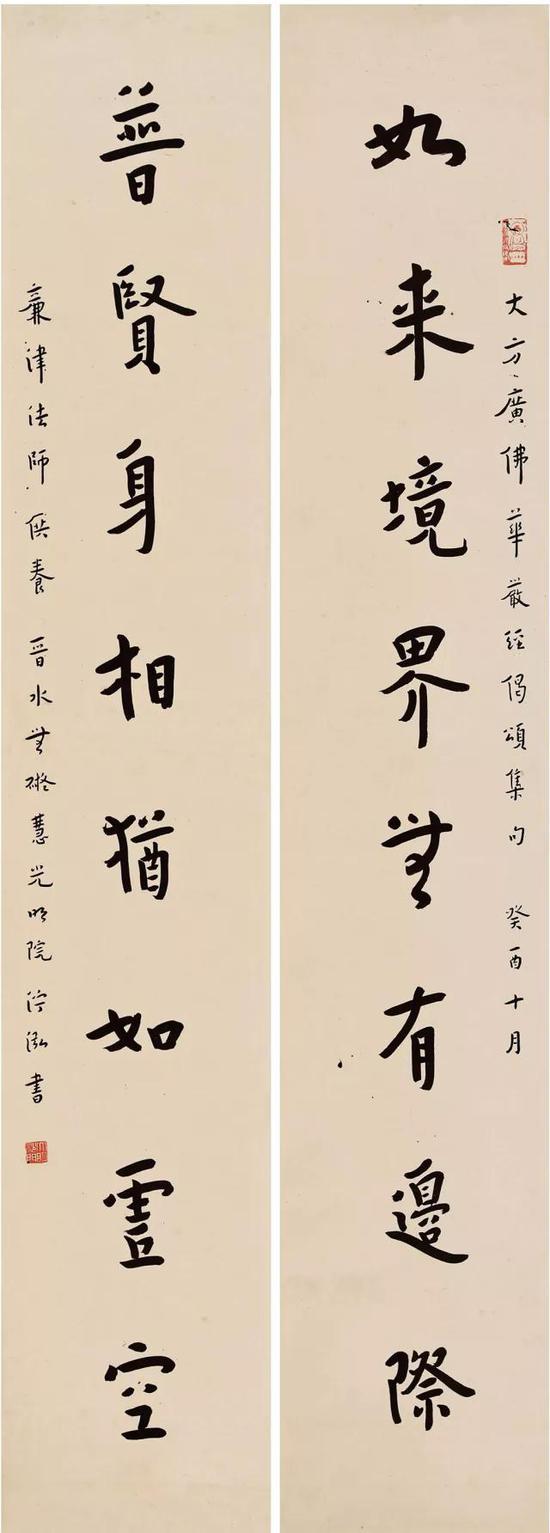 大方廣佛華嚴經偈頌集句 癸酉十月
如来境界無有邊際
普賢身相猶如虛空
律法師供養 晉水無礙慧光明院 泓書